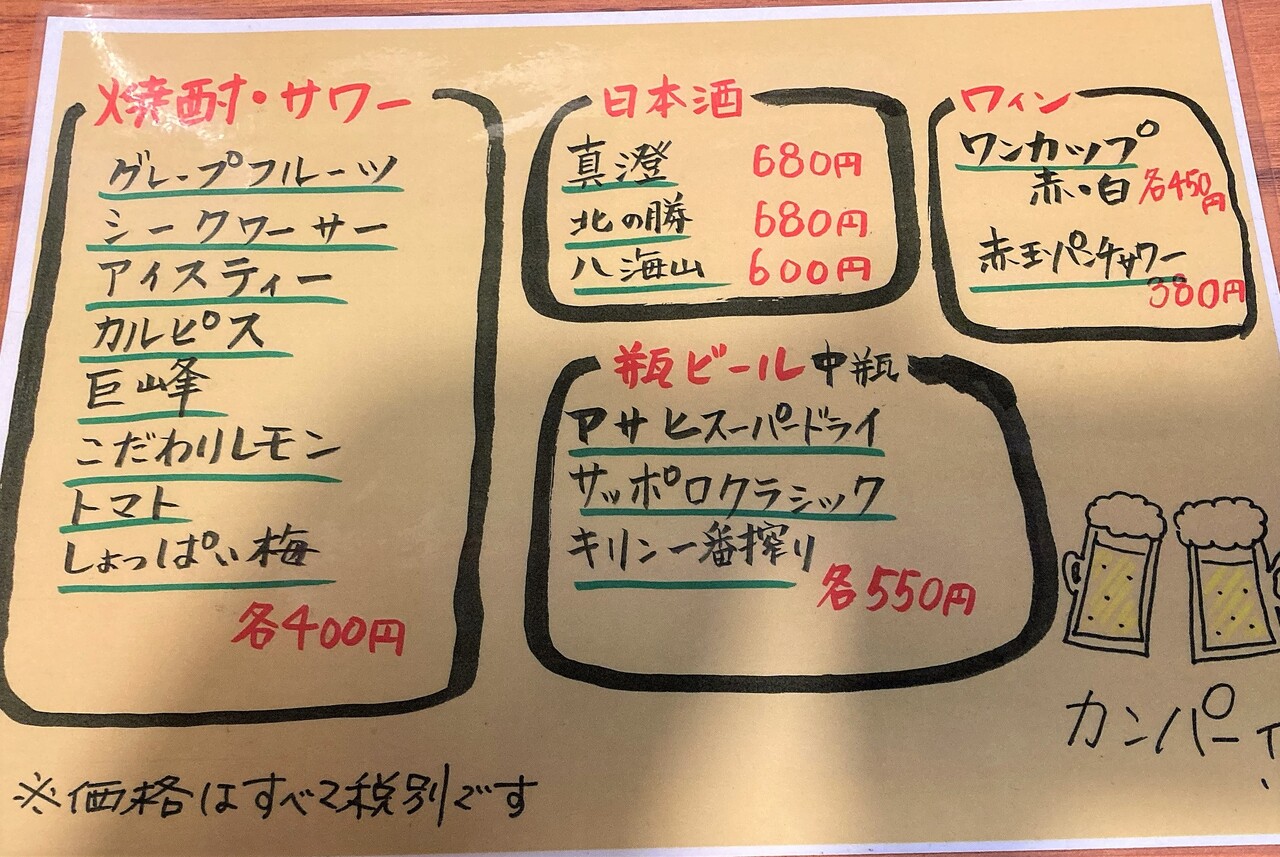 焼酎・サワー
グレープフルーツ
シークワーサー
アイスティー
カルピス
巨峰
こだわりレモン
トマト
しょっぱい梅
各400円
日本酒
真澄 680円
北の勝 680円
八海山 600円
ワイン
ワンカップ
赤・白 各450円
赤玉パンチサワー
380円
瓶ビール 中瓶
アサヒスーパードライ
サッポロクラシック
キリン一番搾り
各550円
カンパーイ
※価格はすべて税別です